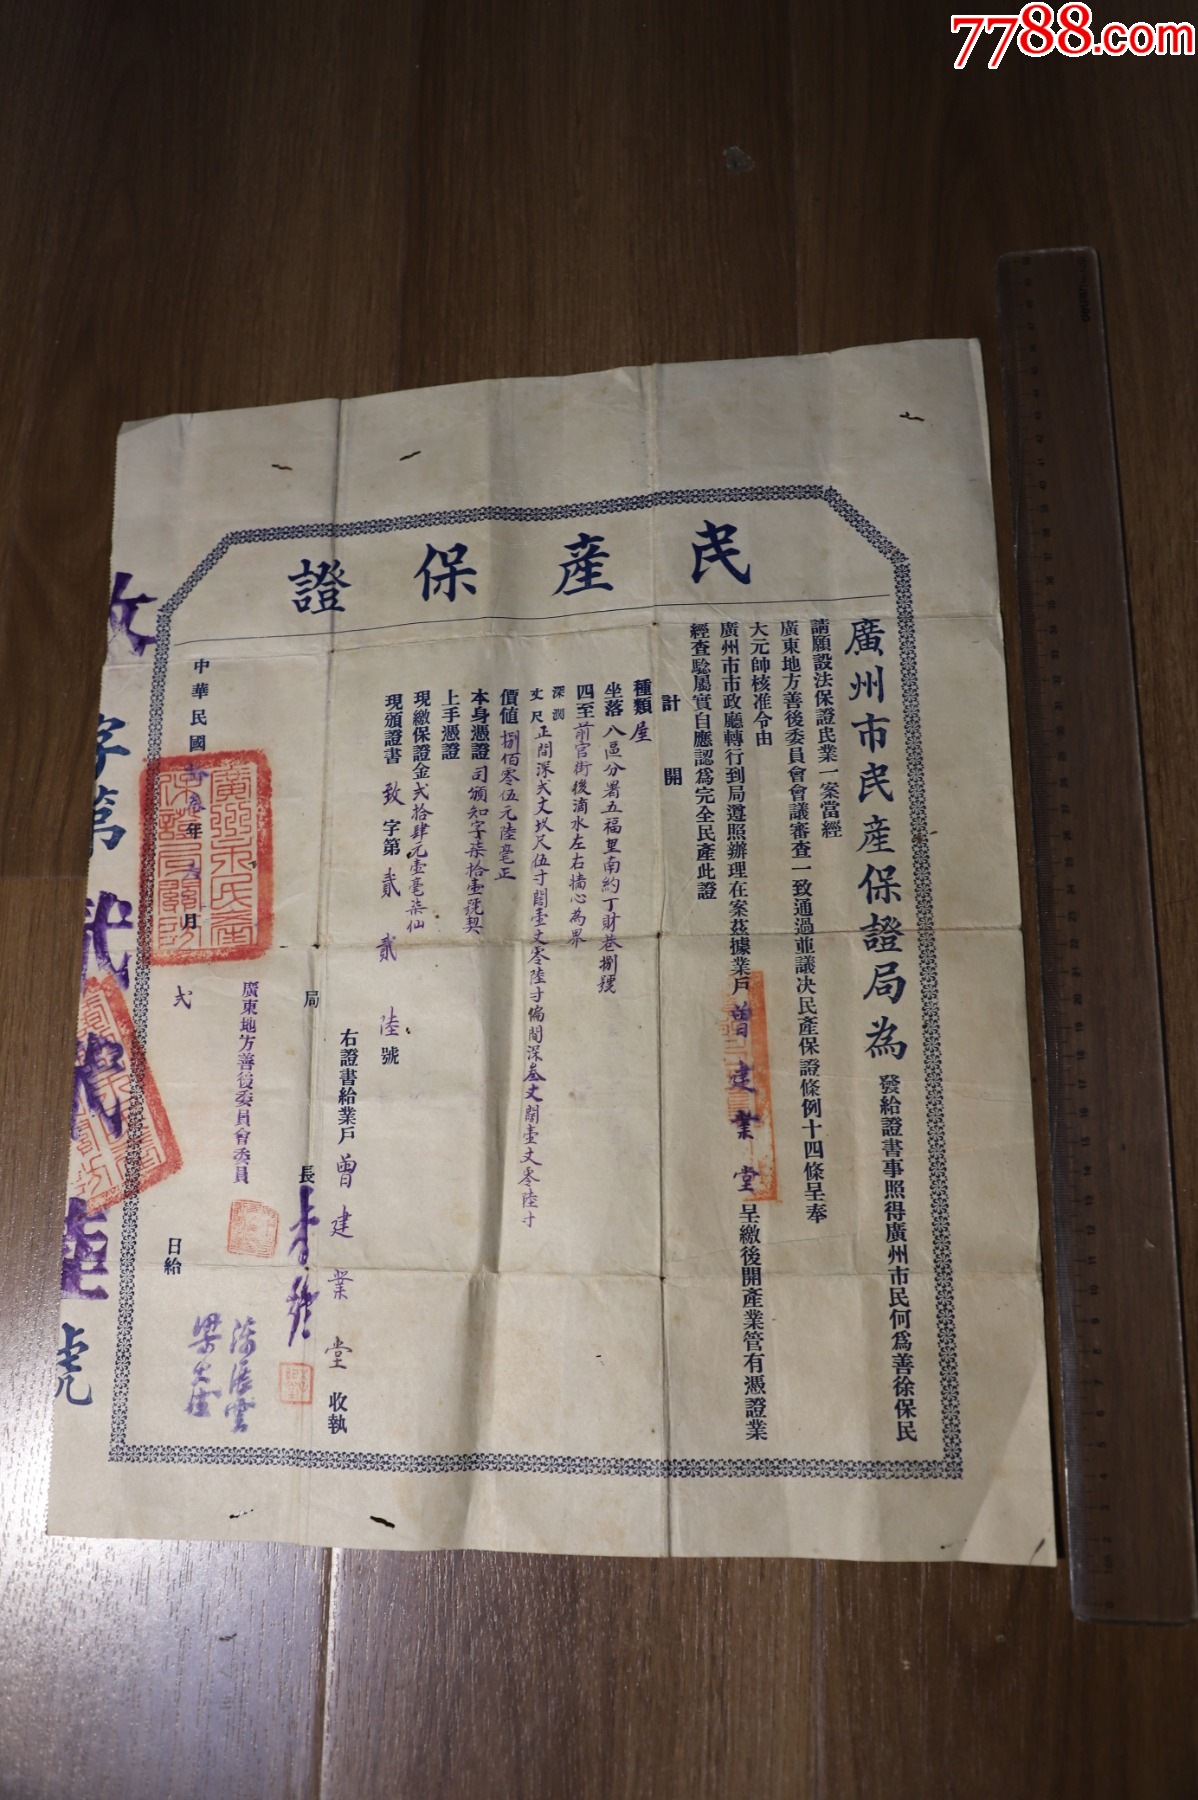 7788.com
民產保證
廣州市民產保證局為
發給證書事照得廣州市民何為善徐保民
請願設法保證民業一案當經
廣東地方善後委員會會議審查一致通過並議決民產保證條例十四條呈奉
大元帥核准令由
廣州市市政廳轉行到局遵照辦理在案茲據業戶曾建業堂呈繳後開產業管有憑證業
經查騐屬實自應認為完全民產此證
計開
種類屋
坐落八區分署五福里南約丁財巷捌號
四至前官街後滴水左右墻心為界
深濶丈尺正間深弍丈玖尺伍寸闊壹丈零陸寸偏間深叁丈闊壹丈零陸寸
價值捌佰零伍元陸毫正
本身憑證司頒知字柒拾壹號契
上手憑證
現繳保證金弍拾肆元壹毫柒仙
現頒證書致字第貳貳陸號
右證書給業戶曾建業堂收執
局長
廣東地方善後委員會委員
中華民國年月弍日給
致字第弍弍陸號